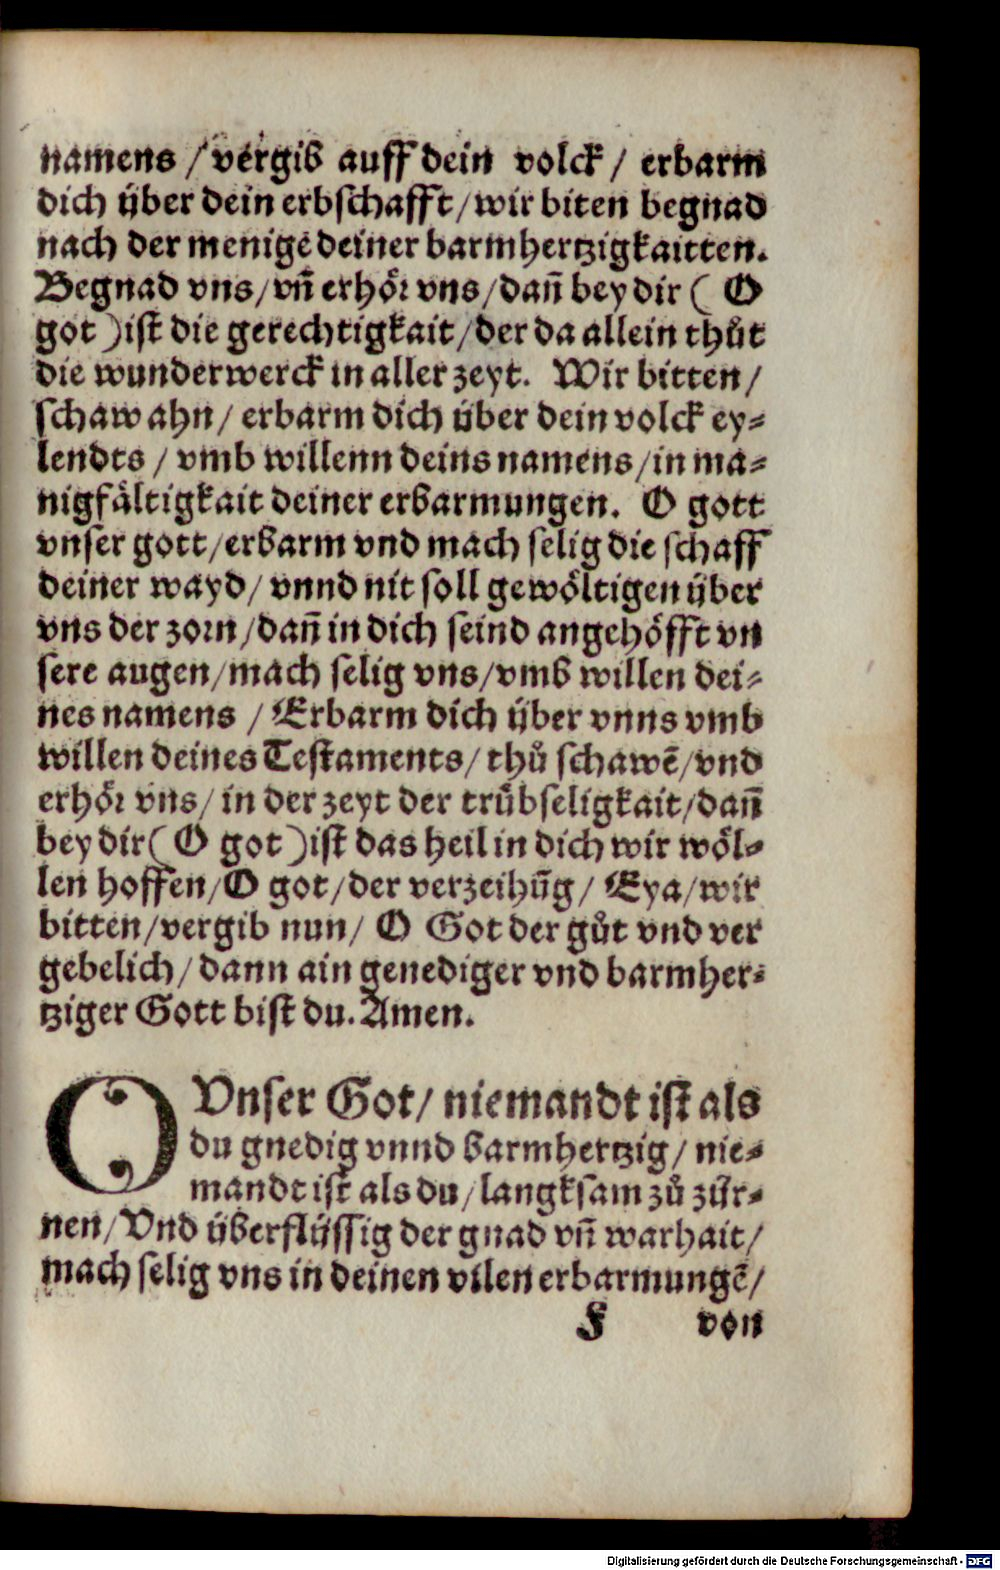 namens / vergib auff dein volck / erbarm
dich über dein erbschafft / wir biten begnad
nach der menige deiner barmhertzigkaitten.
Begnad vns / vn̄ erhör vns / dan̄ bey dir ( O
got ) ist die gerechtigkait / der da allein thůt
die wunderwerck in aller zeyt. Wir bitten /
schaw ahn / erbarm dich über dein volck ey⸗
lendts / vmb willenn deins namens / in ma⸗
nigfältigkait deiner erbarmungen. O gott
vnser gott / erbarm vnd mach selig die schaff
deiner wayd / vnnd nit soll gewöltigen über
vns der zorn / dan̄ in dich seind angehöfft vn
sere augen / mach selig vns / vmb willen dei⸗
nes namens / Erbarm dich über vnns vmb
willen deines Testaments / thů schawē / vnd
erhör vns / in der zeyt der trübseligkait / dan̄
bey dir ( O got ) ist das heil in dich wir wöl⸗
len hoffen / O got / der verzeihūg / Eya / wir
bitten / vergib nun / O Got der gůt vnd ver
gebelich / dann ain genediger vnd barmher⸗
tziger Gott bist du. Amen.
O Vnser Got / niemandt ist als
du gnedig vnnd barmhertzig / nie⸗
mandt ist als du / langksam zů zür⸗
nen / Vnd überflüssig der gnad vn̄ warhait /
mach selig vns in deinen vilen erbarmungē /
F von
Digitalisierung gefördert durch die Deutsche Forschungsgemeinschaft - DFG